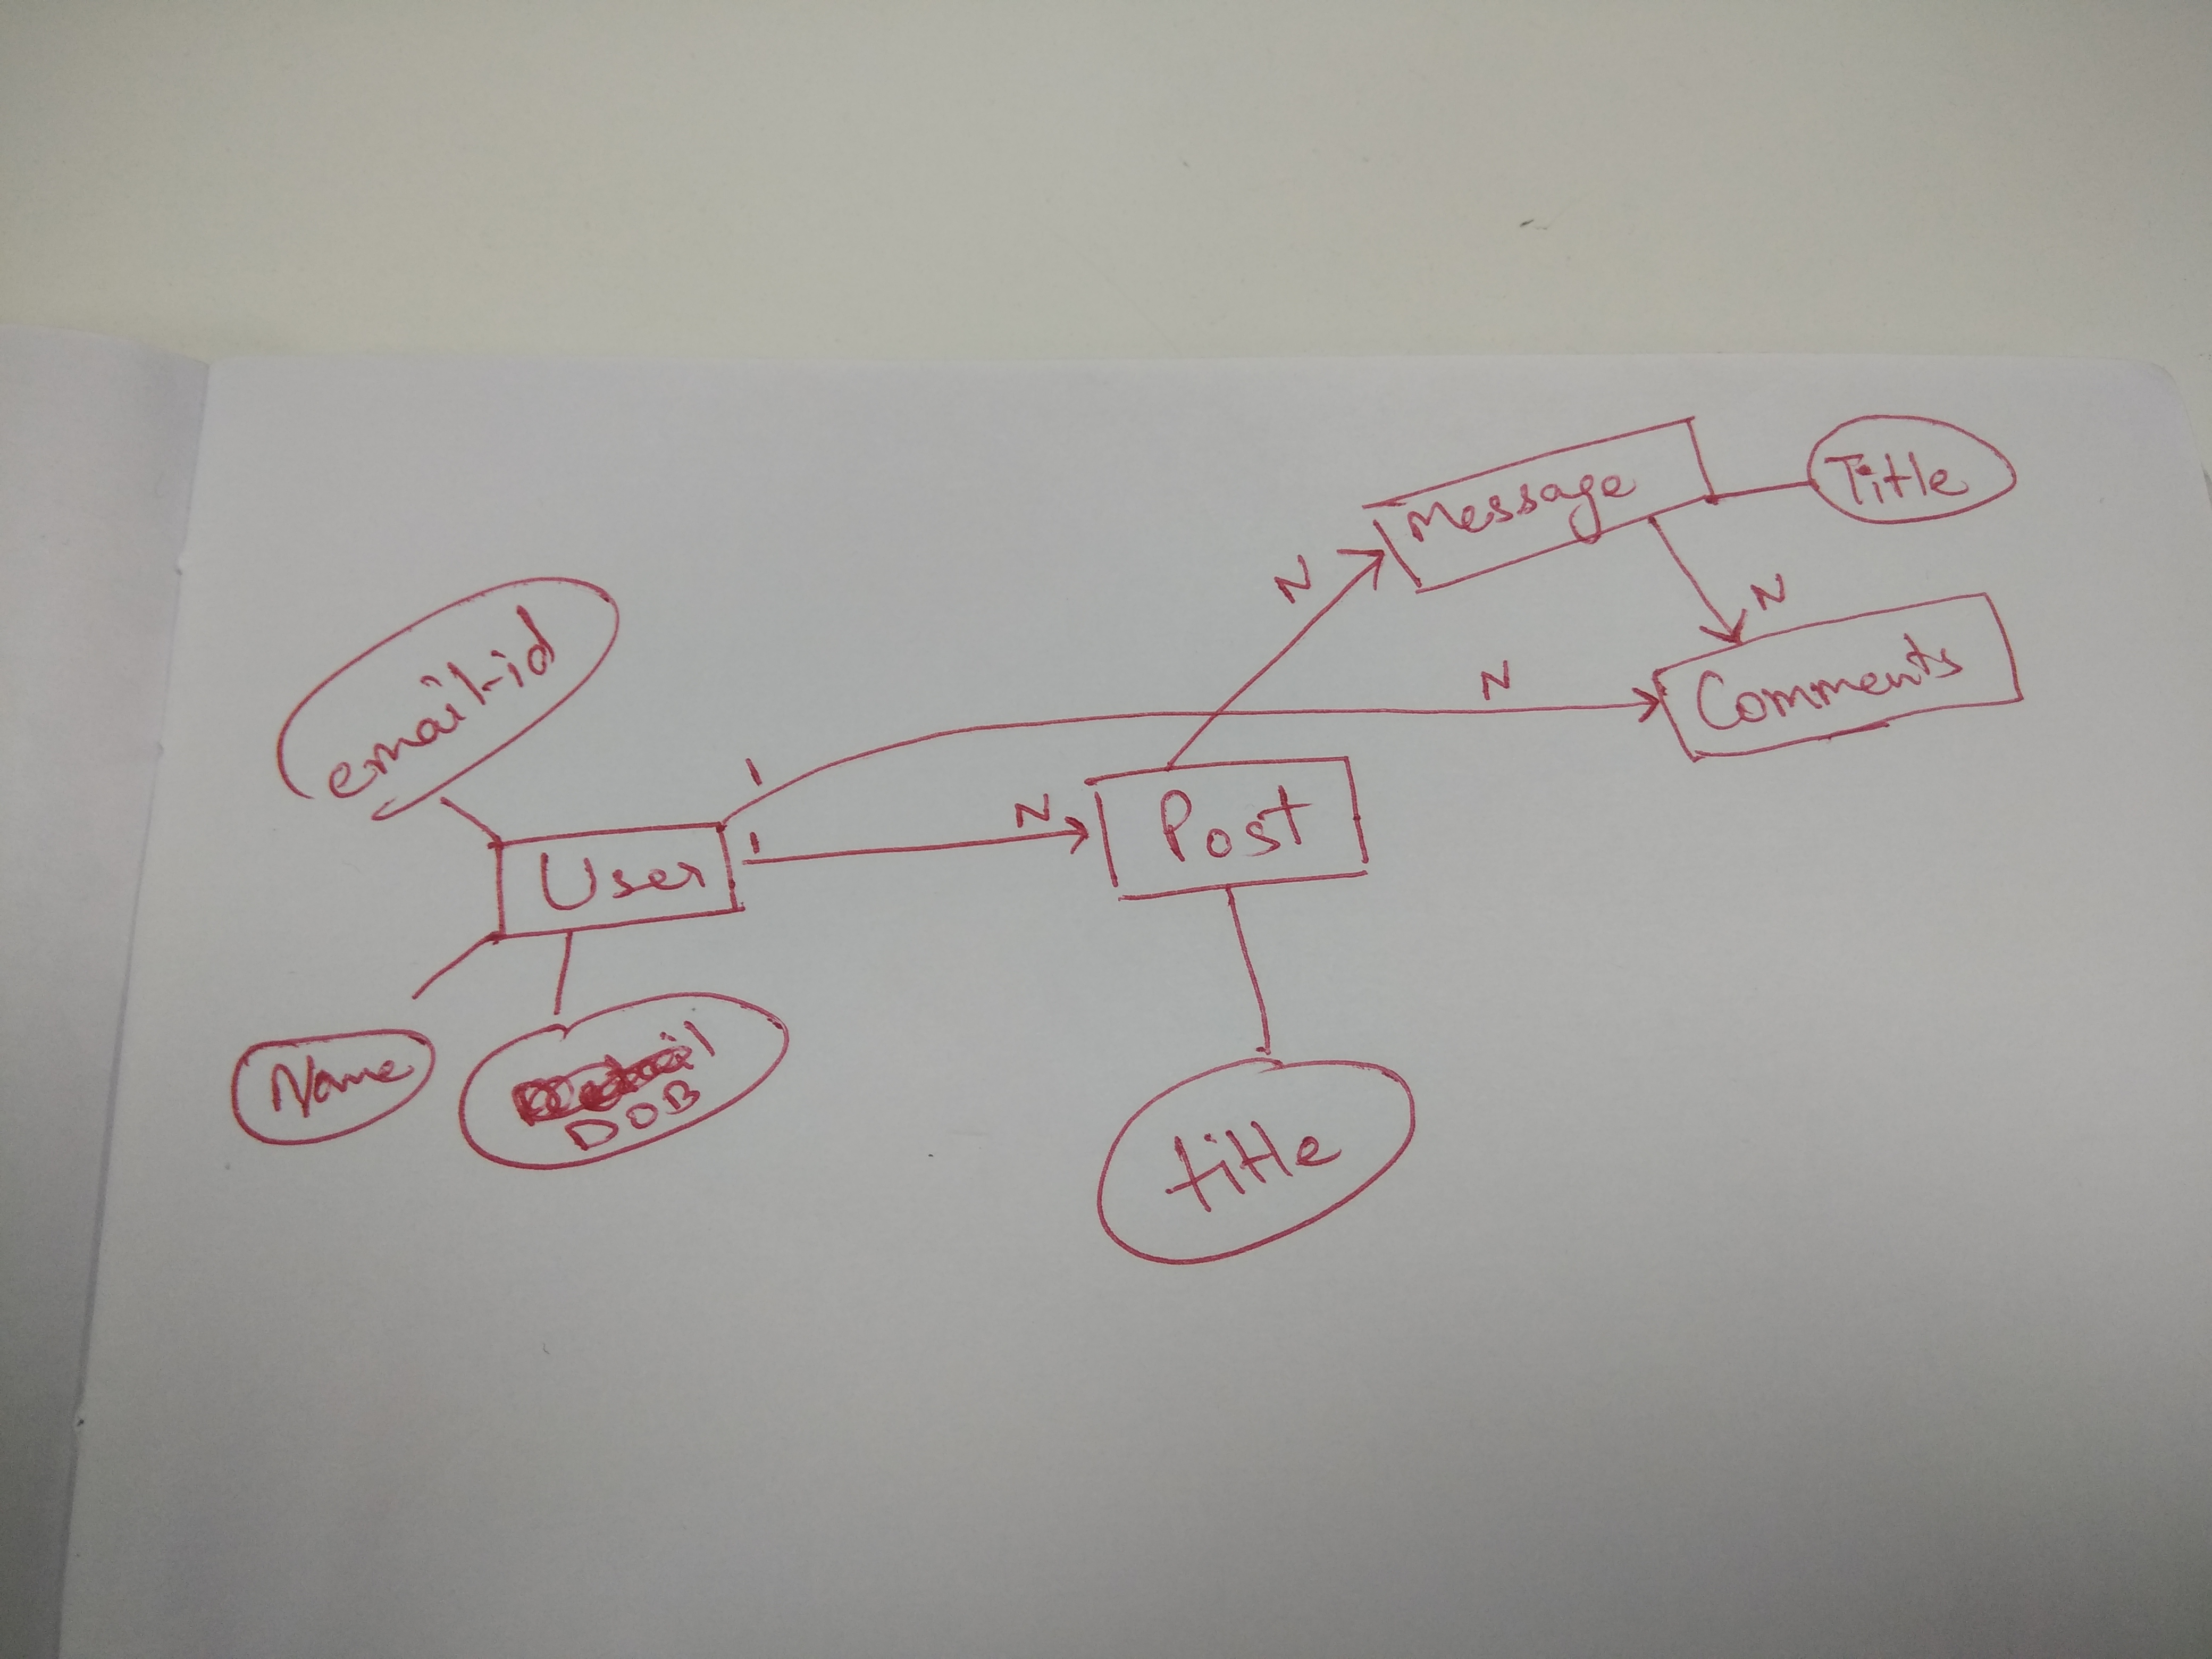 Message
Title
N
N
email-id
N
Comments
1
1
N
Post
User
Name
DOB
title